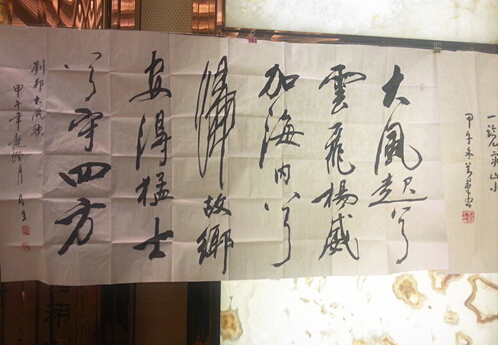 一覽衆山小
甲午冬
大風起兮
雲飛楊威
加海内兮
歸故鄉
安得猛士
兮守四方
劉邦大風歌
甲午年